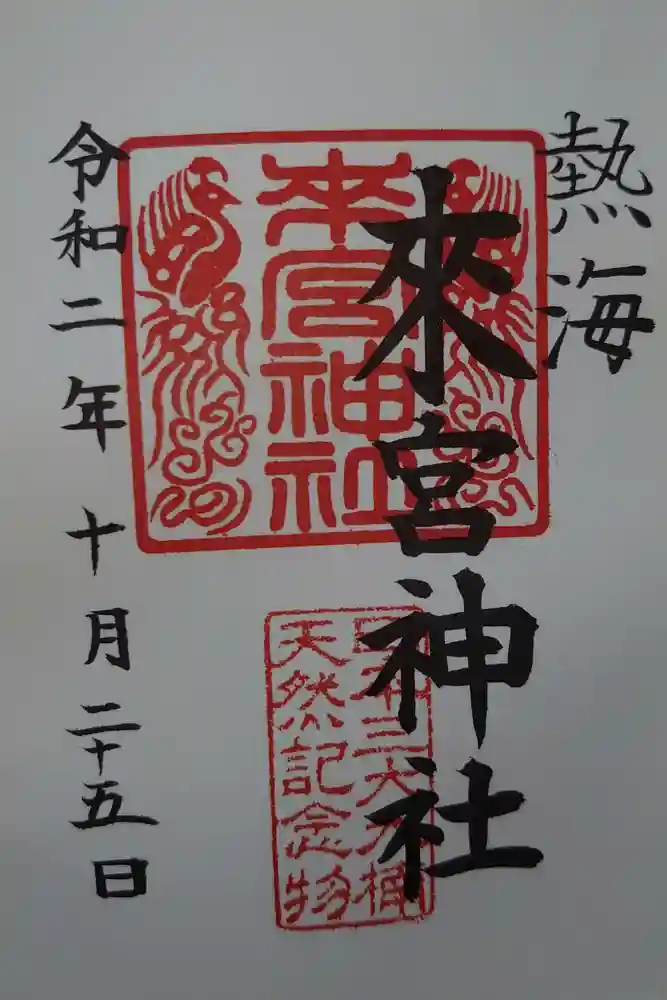 熱海
來宮神社
来宮神社
日本三大大楠
天然記念物
令和二年十月二十五日